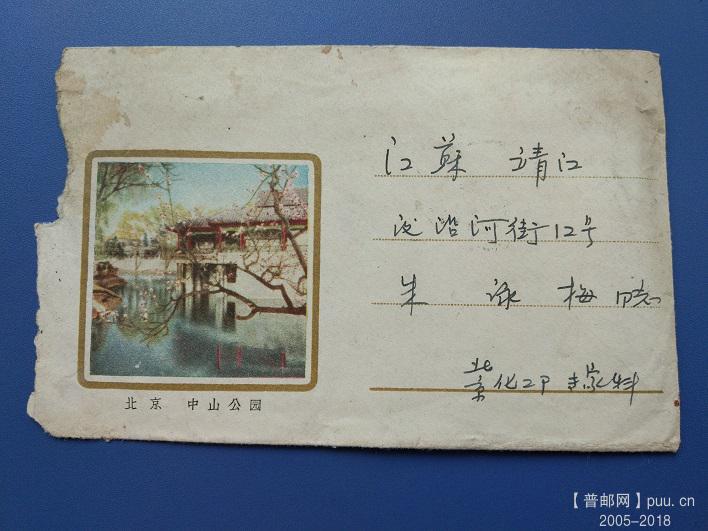 江蘇 靖江
沿河街12号
朱 詠 梅 同志
北京化工
北京 中山公园
【普邮网】puu.cn
2005-2018